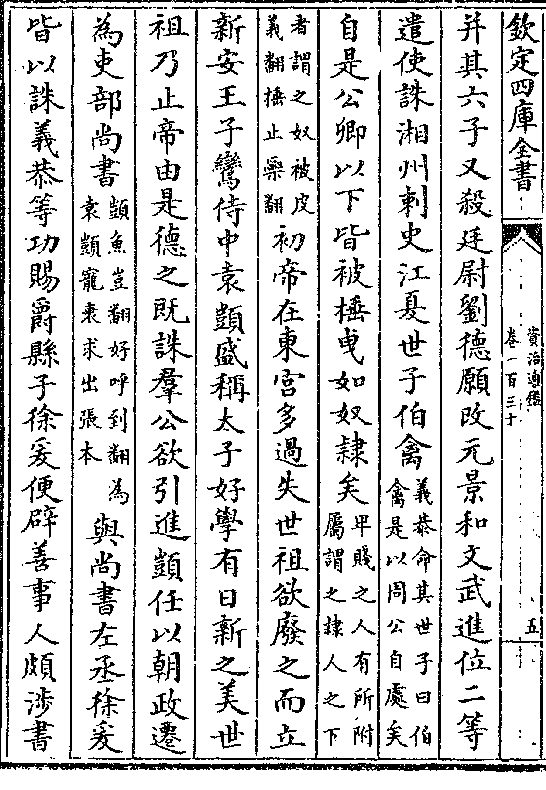 欽定四庫全書
資治通鑑
卷一百三十
五
并其六子又殺廷尉劉德願改元景和文武進位二等
遣使誅湘州刺史江夏世子伯禽
義恭命其世子曰伯
禽是以周公自處矣
自是公卿以下皆被捶曵如奴隷矣
卑賤之人有所附
屬謂之隷人之下
者謂之奴被皮
義翻捶止橤翻
初帝在東宫多過失世祖欲廢之而立
新安王子鸞侍中袁顗盛稱太子好學有日新之美世
祖乃止帝由是德之既誅羣公欲引進顗任以朝政遷
為吏部尚書
顗魚豈翻好呼到翻為
袁顗寵衰求出張本
與尚書左丞徐爰
皆以誅義恭等功賜爵縣子徐爰便辟善事人頗涉書